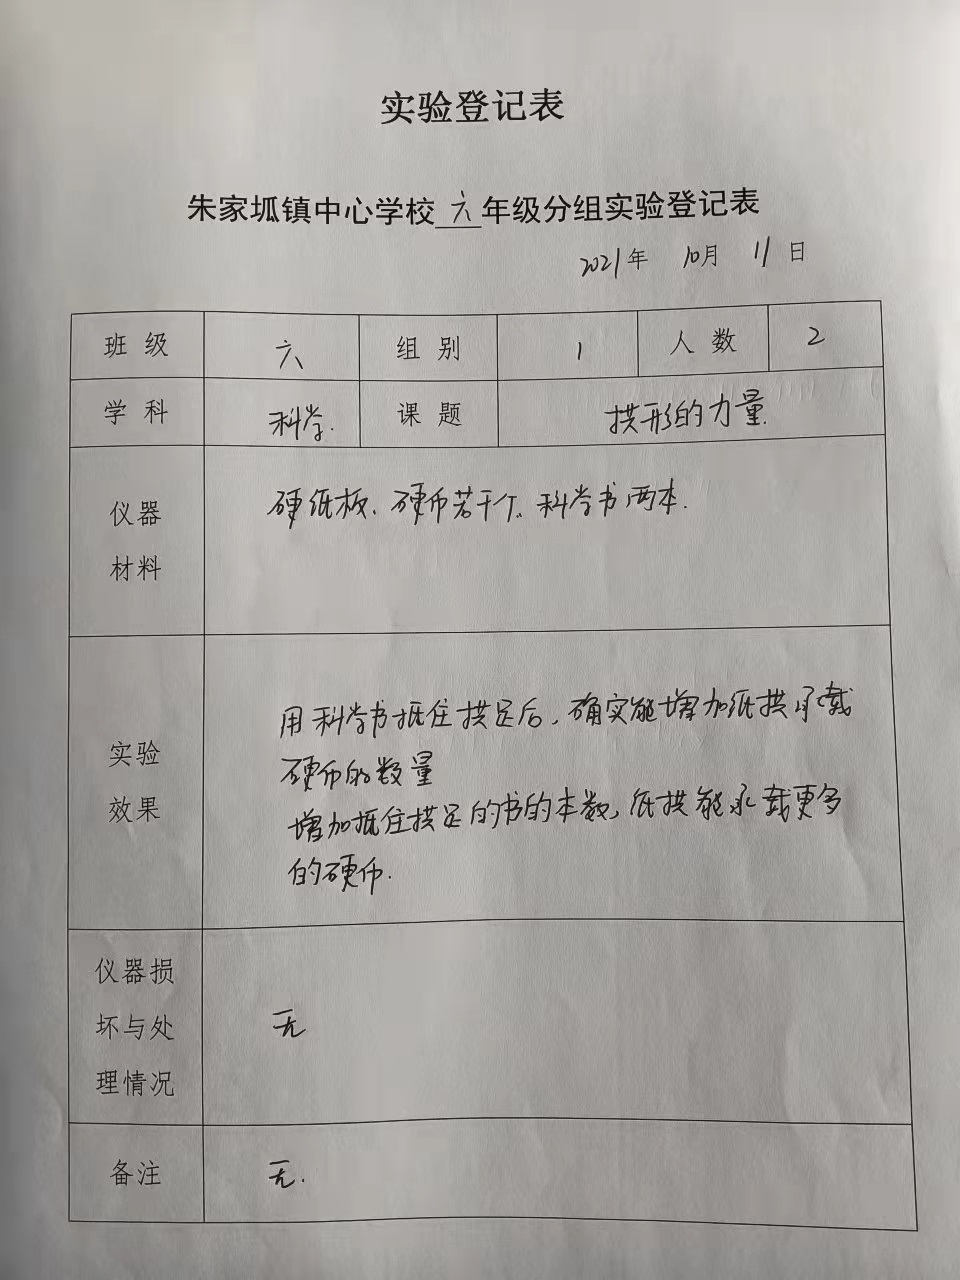 实验登记表
朱家坬镇中心学校六年级分组实验登记表
2021年 10月 11日
班级 六 组别 1 人数 2
学科 科学. 课题 拱形的力量.
仪器材料 硬纸板、硬币若干个、科学书两本.
实验效果 用科学书抵住拱足后,确实能增加纸拱承载
硬币的数量
增加抵住拱足的书的本数,纸拱能承载更多
的硬币.
仪器损坏与处理情况 无
备注 无.